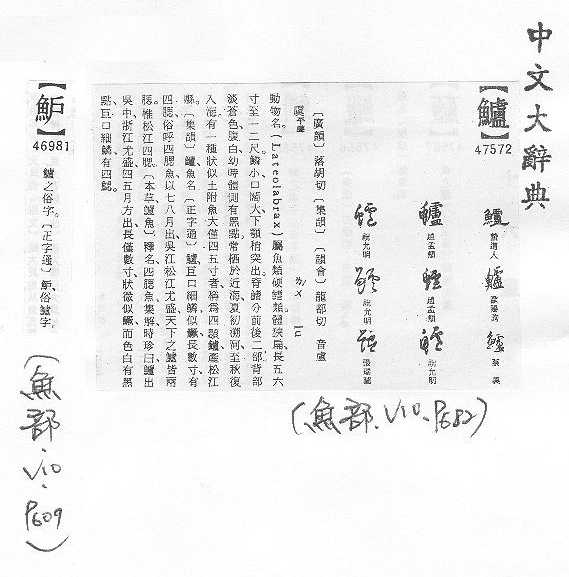 中文大辭典
【鱸】
47572
〔廣韻〕落胡切〔集韻〕〔韻會〕龍都切 音盧
虞平聲 ㄌㄨ lu
動物名。(Lateolabrax)屬魚類硬鰭類。體狹扁,長五六
寸至一二尺,鱗小口闊大,下顎稍突出,脊鰭分前後二部,背部
淡蒼色,腹白,幼時體側有黑點,常棲於近海,夏初溯河,至秋復
入海。有一種狀似土附魚,大僅四五寸者,稱爲四鰓鱸,產松江
縣。〔集韻〕鱸,魚名。〔正字通〕鱸,巨口細鱗,似鱖,長數寸,有
四腮,俗呼四腮魚,以七八月出吳江,松江尤盛,天下之鱸皆兩
腮,惟松江四腮。〔本草,鱸魚〕釋名,四腮魚,集解,時珍曰,鱸出
吳中,浙江尤盛,四五月方出,長僅數寸,狀微似鱖,而色白,有黑
點,巨口細鱗,有四鰓。
(魚部.V10.P682)
【鲈】
46981
鱸之俗字。〔正字通〕鲈,俗鱸字。
(魚部.V10.P609)